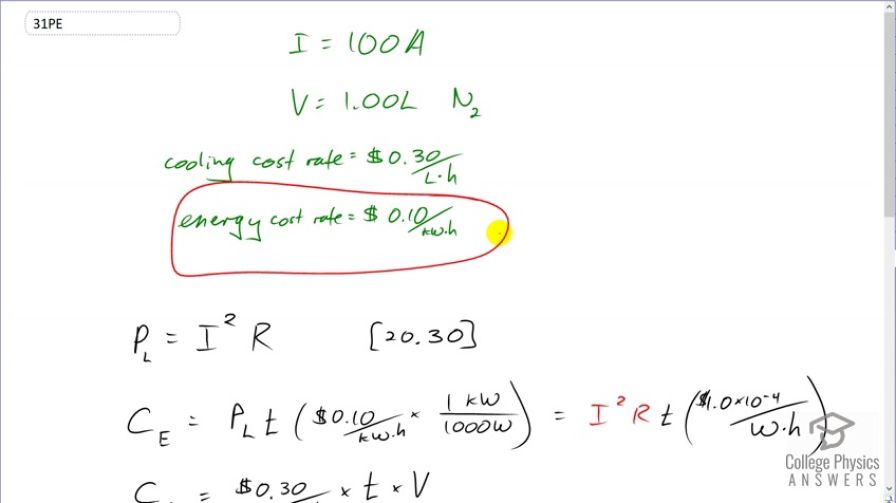 31PE
I = 100A
V = 1.00L N₂
cooling cost rate = $0.30/L·h
energy cost rate = $0.10/kW·h
P_L = I² R [20.30]
C_E = P_L t ($0.10/kW·h × 1 kW/1000W) = I² R t ($1.0×10⁻⁴/W·h)
= $0.30 × t × V
College Physics
ANSWERS